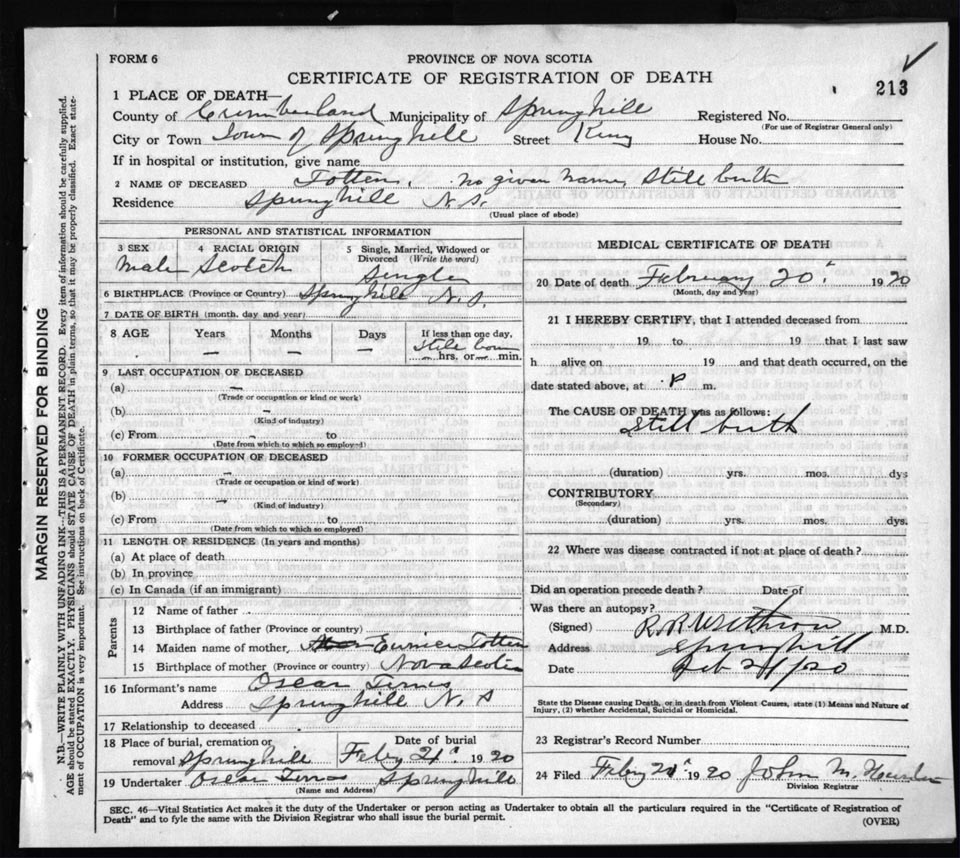 FORM 6
PROVINCE OF NOVA SCOTIA
CERTIFICATE OF REGISTRATION OF DEATH
213
1 PLACE OF DEATH—
County of Cumberland Municipality of Springhill Registered No.
(For use of Registrar General only)
City or Town Town of Springhill Street King House No.
If in hospital or institution, give name
2 NAME OF DECEASED Totten, no given name, Still birth
Residence Springhill N.S.
(Usual place of abode)
PERSONAL AND STATISTICAL INFORMATION
3 SEX 4 RACIAL ORIGIN 5 Single, Married, Widowed or Divorced (Write the word)
Male Scotch Single
6 BIRTHPLACE (Province or Country) Springhill N.S.
7 DATE OF BIRTH (month, day and year)
8 AGE Years Months Days If less than one day,
— — — Still born
— hrs. or — min.
9 LAST OCCUPATION OF DECEASED
(a) —
(Trade or occupation or kind or work)
(b) —
(Kind of industry)
(c) From - to
(Date from which to which so employed)
10 FORMER OCCUPATION OF DECEASED
(a) —
(Trade or occupation or kind of work)
(b) —
(Kind of industry)
(c) From to
(Date from which to which so employed)
11 LENGTH OF RESIDENCE (In years and months)
(a) At place of death
(b) In province
(c) In Canada (if an immigrant)
Parents
12 Name of father
13 Birthplace of father (Province or country)
14 Maiden name of mother, Eunice Totten
15 Birthplace of mother (Province or country) Nova Scotia
16 Informant's name Oscar
Address Springhill N.S
17 Relationship to deceased
18 Place of burial, cremation or removal Springhill
Date of burial Feby 21 1920
19 Undertaker Oscar Springhill
(Name and Address)
MEDICAL CERTIFICATE OF DEATH
20 Date of death February 20 1920
(Month, day and year)
21 I HEREBY CERTIFY, that I attended deceased from
19 to 19 that I last saw
h alive on 19 and that death occurred, on the
date stated above, at P m.
The CAUSE OF DEATH was as follows:
Still birth
(duration) yrs. mos. dys
CONTRIBUTORY
(Secondary)
(duration) yrs. mos. dys.
22 Where was disease contracted if not at place of death?
Did an operation precede death? Date of
Was there an autopsy?
(Signed) R. R. Withrow M.D.
Address Springhill
Date Feb 21/20
State the Disease causing Death, or in death from Violent Causes, state (1) Means and Nature of
Injury, (2) whether Accidental, Suicidal or Homicidal.
23 Registrar's Record Number
24 Filed Feby 1920 John M.
Division Registrar
SEC. 46—Vital Statistics Act makes it the duty of the Undertaker or person acting as Undertaker to obtain all the particulars required in the "Certificate of Registration of
Death" and to fyle the same with the Division Registrar who shall issue the burial permit.
(OVER)
MARGIN RESERVED FOR BINDING
N.B.—WRITE PLAINLY WITH UNFADING INK—THIS IS A PERMANENT RECORD. Every item of information should be carefully supplied.
AGE should be stated EXACTLY. PHYSICIANS should STATE CAUSE OF DEATH in plain terms, so that it may be properly classified. Exact state-
ment of OCCUPATION is very important. See instructions on back of Certificate.